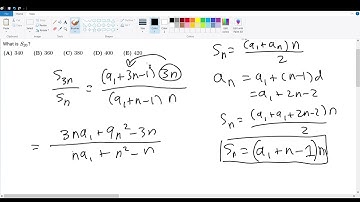 What is S₂₀?
(A) 340 (B) 360 (C) 380 (D) 400 (E) 420
S₃ₙ / Sₙ = (a₁+3n-1)(3n) / (a₁+n-1) n
= 3na₁+9n²-3n / na₁+n²-n
Sₙ = (a₁+aₙ) n / 2
aₙ = a₁+(n-1)d
= a₁+2n-2
Sₙ = (a₁+a₁+2n-2) n / 2
Sₙ = (a₁+n-1)n